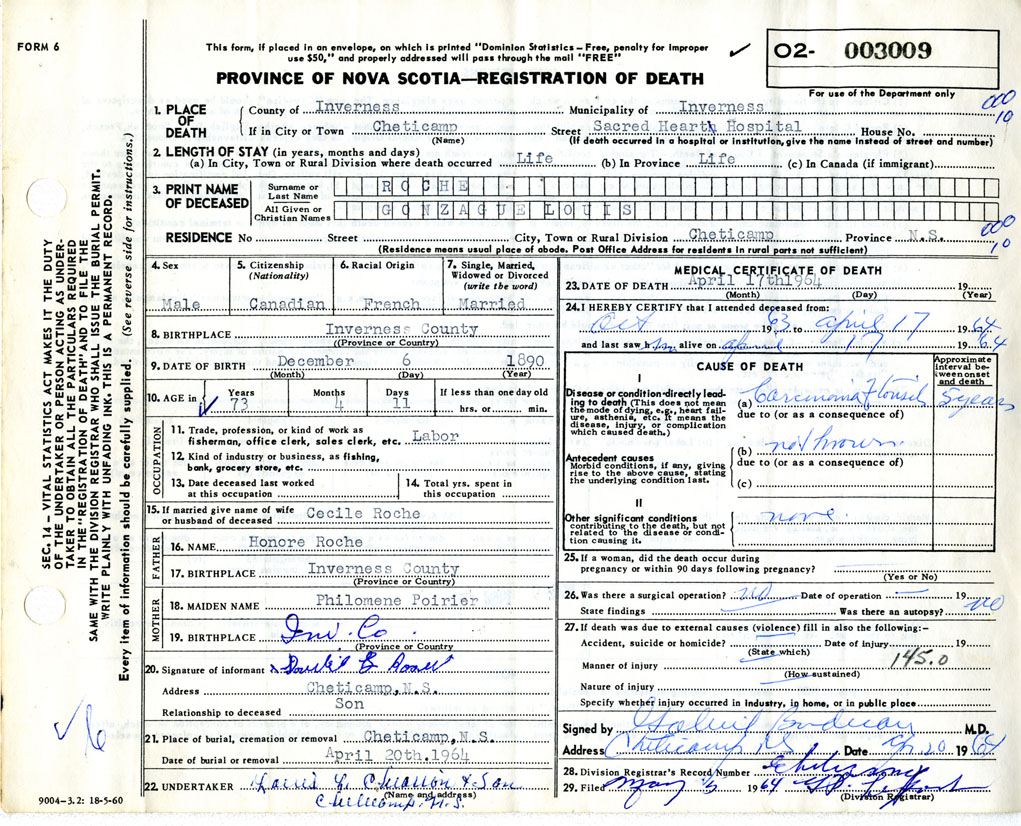 FORM 6
This form, if placed in an envelope, on which is printed "Dominion Statistics – Free, penalty for improper
use $50," and properly addressed will pass through the mail "FREE"
✓
O2- 003009
For use of the Department only
PROVINCE OF NOVA SCOTIA—REGISTRATION OF DEATH
000
10
1. PLACE OF DEATH
County of Inverness Municipality of Inverness
If in City or Town Cheticamp Street Sacred Heart Hospital House No.
(Name) (If death occurred in a hospital or institution, give the name instead of street and number)
2. LENGTH OF STAY (in years, months and days)
(a) In City, Town or Rural Division where death occurred Life (b) In Province Life (c) In Canada (if immigrant)
3. PRINT NAME OF DECEASED
Surname or Last Name ROCHE
All Given or Christian Names GONZAGUE LOUIS
000
10
RESIDENCE No Street City, Town or Rural Division Cheticamp Province N.S.
(Residence means usual place of abode. Post Office Address for residents in rural parts not sufficient)
4. Sex Male
5. Citizenship (Nationality) Canadian
6. Racial Origin French
7. Single, Married, Widowed or Divorced (write the word) Married
8. BIRTHPLACE Inverness County
((Province or Country)
9. DATE OF BIRTH December 6 1890
(Month) (Day) (Year)
10. AGE in ✓ Years 73 Months 4 Days 11 If less than one day old hrs. or min.
OCCUPATION
11. Trade, profession, or kind of work as
fisherman, office clerk, sales clerk, etc. Labor
12. Kind of industry or business, as fishing,
bank, grocery store, etc.
13. Date deceased last worked
at this occupation
14. Total yrs. spent in
this occupation
15. If married give name of wife
or husband of deceased Cecile Roche
FATHER
16. NAME Honore Roche
17. BIRTHPLACE Inverness County
(Province or Country)
MOTHER
18. MAIDEN NAME Philomene Poirier
19. BIRTHPLACE Inv. Co.
(Province or Country)
20. Signature of informant
Address Cheticamp, N.S.
Relationship to deceased Son
21. Place of burial, cremation or removal Cheticamp, N.S.
Date of burial or removal April 20th. 1964
22. UNDERTAKER & Son
(Name and address)
Cheticamp, N.S.
MEDICAL CERTIFICATE OF DEATH
23. DATE OF DEATH April 17th 1964 19
(Month) (Day) (Year)
24. I HEREBY CERTIFY that I attended deceased from:
Oct 1963 to April 17 1964
and last saw him alive on April 17 1964
CAUSE OF DEATH
Approximate interval between onset and death
I
Disease or condition directly leading to death (This does not mean the mode of dying, e.g., heart failure, asthenia, etc. It means the disease, injury, or complication which caused death.)
(a) Carcinoma of Tonsil 5 years
due to (or as a consequence of)
Antecedent causes
Morbid conditions, if any, giving rise to the above cause, stating the underlying condition last.
(b) not known
due to (or as a consequence of)
(c)
II
Other significant conditions
contributing to the death, but not related to the disease or condition causing it.
none.
25. If a woman, did the death occur during
pregnancy or within 90 days following pregnancy? —
(Yes or No)
26. Was there a surgical operation? no Date of operation — 19
State findings Was there an autopsy? no
27. If death was due to external causes (violence) fill in also the following:-
Accident, suicide or homicide? Date of injury 19
(State which)
Manner of injury 145.0
(How sustained)
Nature of injury
Specify whether injury occurred in industry, in home, or in public place
Signed by Gabriel Boudreau M.D.
Address Cheticamp NS Date 20 1964
28. Division Registrar's Record Number
29. Filed May 1964
(Division Registrar)
SEC. 14 – VITAL STATISTICS ACT MAKES IT THE DUTY
OF THE UNDERTAKER OR PERSON ACTING AS UNDER-
TAKER TO OBTAIN ALL THE PARTICULARS REQUIRED
IN THE "REGISTRATION OF DEATH" AND TO FILE THE
SAME WITH THE DIVISION REGISTRAR WHO SHALL ISSUE THE BURIAL PERMIT.
WRITE PLAINLY WITH UNFADING INK. THIS IS A PERMANENT RECORD.
Every item of information should be carefully supplied. (See reverse side for instructions.)
9004-3.2: 18-5-60